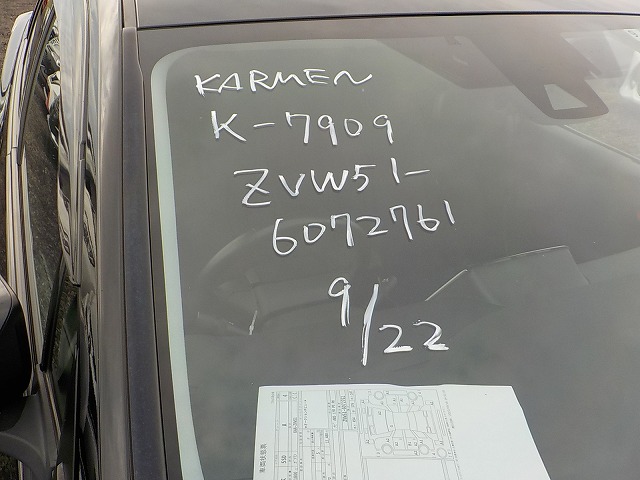 KARMEN
K-7909
ZVW51-
6072761
9/22
車両状態票